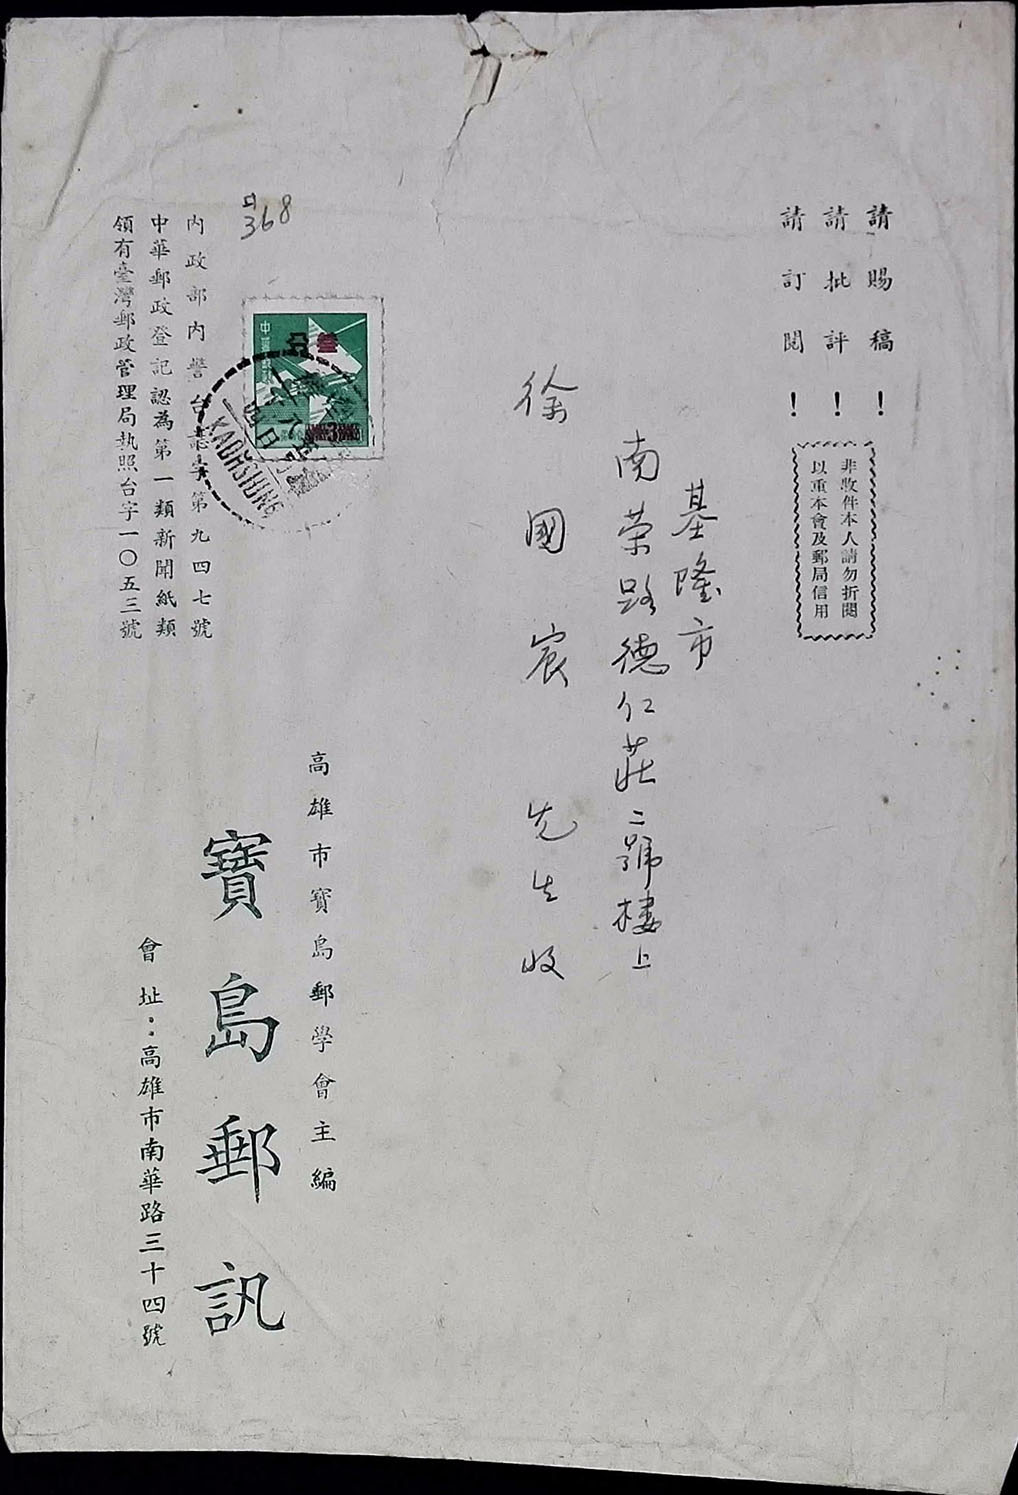 請賜稿！
請批評！
請訂閱！
非收件本人請勿折閱
以重本會及郵局信用
基隆市
南荣路德仁莊二號樓上
徐國宸先生收
368
叁分
KAOHSIUNG
高雄市寶島郵學會主編
寶島郵訊
會址：高雄市南華路三十四號
內政部內警台誌字第九四七號
中華郵政登記認為第一類新聞紙類
領有臺灣郵政管理局執照台字一〇五三號